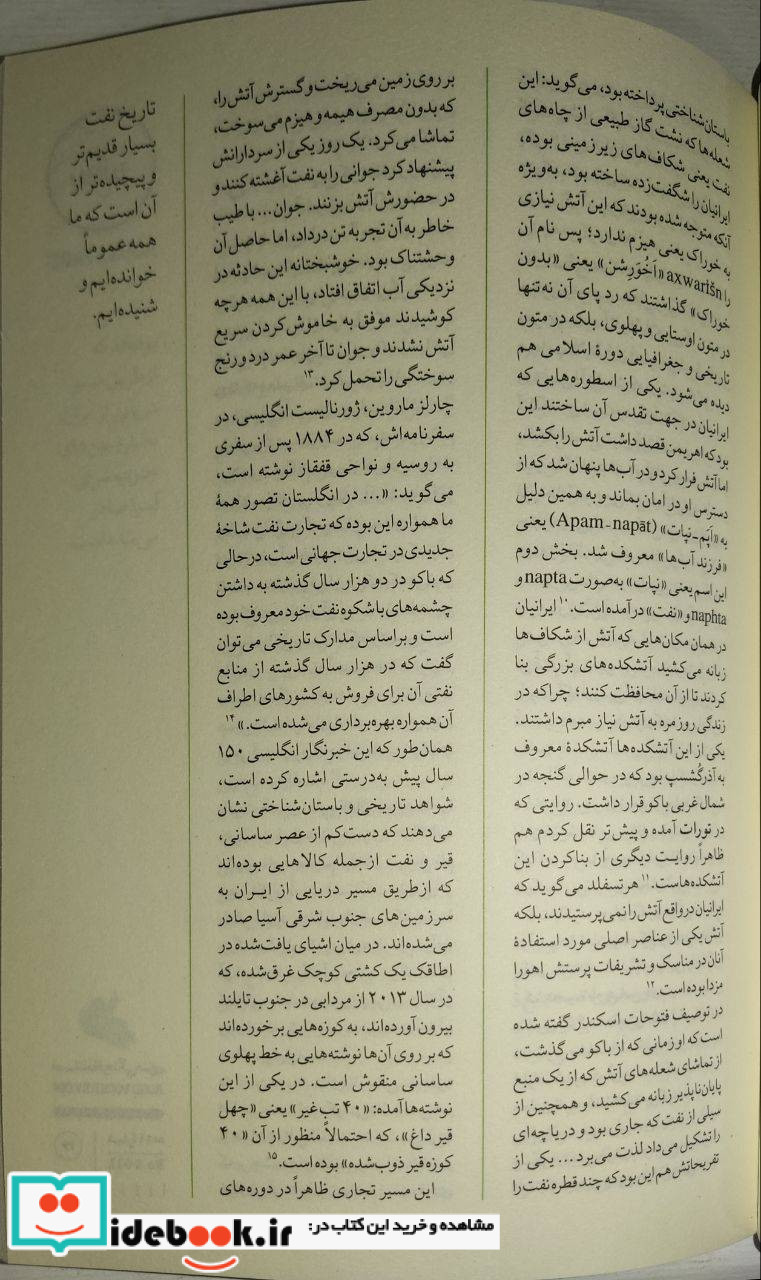 باستان‌شناختی پرداخته بود، می‌گوید: این
شعله‌ها که نشت گاز طبیعی از چاه‌های
نفت یعنی شکاف‌های زیرزمینی بوده،
ایرانیان را شگفت‌زده ساخته بود، به‌ویژه
آنکه متوجه شده بودند که این آتش نیازی
به خوراک یعنی هیزم ندارد؛ پس نام آن
را axwarišn «اَخْوَرِشن» یعنی «بدون
خوراک» گذاشتند که رد پای آن نه‌تنها
در متون اوستایی و پهلوی، بلکه در متون
تاریخی و جغرافیایی دورهٔ اسلامی هم
دیده می‌شود. یکی از اسطوره‌هایی که
ایرانیان در جهت تقدس آن ساختند این
بود که اهریمن قصد داشت آتش را بکشد،
اما آتش فرار کرد و در آب‌ها پنهان شد که از
دسترس او در امان بماند و به همین دلیل
به «اَپَم-نپات» (Apam-napāt) یعنی
«فرزند آب‌ها» معروف شد. بخش دوم
این اسم یعنی «نپات» به‌صورت napta و
naphta و «نفت» درآمده است.۱۰ ایرانیان
در همان مکان‌هایی که آتش از شکاف‌ها
زبانه می‌کشید آتشکده‌های بزرگی بنا
کردند تا از آن محافظت کنند؛ چراکه در
زندگی روزمره به آتش نیاز مبرم داشتند.
یکی از این آتشکده‌ها آتشکدهٔ معروف
به آذرگُشسپ بود که در حوالی گنجه در
شمال غربی باکو قرار داشت. روایتی که
در تورات آمده و پیش‌تر نقل کردم هم
ظاهراً روایت دیگری از بنا کردن این
آتشکده‌هاست.۱۱ هرتسفلد می‌گوید که
ایرانیان درواقع آتش را نمی‌پرستیدند، بلکه
آتش یکی از عناصر اصلی مورد استفادهٔ
آنان در مناسک و تشریفات پرستش اهورا
مزدا بوده است.۱۲
در توصیف فتوحات اسکندر گفته شده
است که او زمانی که از باکو می‌گذشت،
از تماشای شعله‌های آتش که از یک منبع
پایان‌ناپذیر زبانه می‌کشید، و همچنین از
سیلی از نفت که جاری بود و دریاچه‌ای
را تشکیل می‌داد لذت می‌برد ... یکی از
تفریحاتش هم این بود که چند قطره نفت را
بر روی زمین می‌ریخت و گسترش آتش را،
که بدون مصرف هیمه و هیزم می‌سوخت،
تماشا می‌کرد. یک روز یکی از سردارانش
پیشنهاد کرد جوانی را به نفت آغشته کنند و
در حضورش آتش بزنند. جوان... با طیب
خاطر به آن تجربه تن درداد، اما حاصل آن
وحشتناک بود. خوشبختانه این حادثه در
نزدیکی آب اتفاق افتاد، با این همه هرچه
کوشیدند موفق به خاموش کردن سریع
آتش نشدند و جوان تا آخر عمر درد و رنج
سوختگی را تحمل کرد.۱۳
چارلز ماروین، ژورنالیست انگلیسی، در
سفرنامه‌اش، که در ۱۸۸۴ پس از سفری
به روسیه و نواحی قفقاز نوشته است،
می‌گوید: «... در انگلستان تصور همهٔ
ما همواره این بوده که تجارت نفت شاخهٔ
جدیدی در تجارت جهانی است، درحالی
که باکو در دو هزار سال گذشته به داشتن
چشمه‌های باشکوه نفت خود معروف بوده
است و براساس مدارک تاریخی می‌توان
گفت که در هزار سال گذشته از منابع
نفتی آن برای فروش به کشورهای اطراف
آن همواره بهره‌برداری می‌شده است.»۱۴
همان‌طور که این خبرنگار انگلیسی ۱۵۰
سال پیش به‌درستی اشاره کرده است،
شواهد تاریخی و باستان‌شناختی نشان
می‌دهند که دست‌کم از عصر ساسانی،
قیر و نفت ازجمله کالاهایی بوده‌اند
که ازطریق مسیر دریایی از ایران به
سرزمین‌های جنوب شرقی آسیا صادر
می‌شده‌اند. در میان اشیای یافت‌شده در
اطاقک یک کشتی کوچک غرق‌شده، که
در سال ۲۰۱۳ از مردابی در جنوب تایلند
بیرون آورده‌اند، به کوزه‌هایی برخورده‌اند
که بر روی آن‌ها نوشته‌هایی به خط پهلوی
ساسانی منقوش است. در یکی از این
نوشته‌ها آمده: «۴۰ تب‌غیر» یعنی «چهل
قیر داغ»، که احتمالاً منظور از آن «۴۰
کوزه قیر ذوب‌شده» بوده است.۱۵
این مسیر تجاری ظاهراً در دوره‌های
تاریخ نفت
بسیار قدیم‌تر
و پیچیده‌تر از
آن است که ما
همه عموماً
خوانده‌ایم و
شنیده‌ایم.
مشاهده و خرید این کتاب در:
idebook.ir